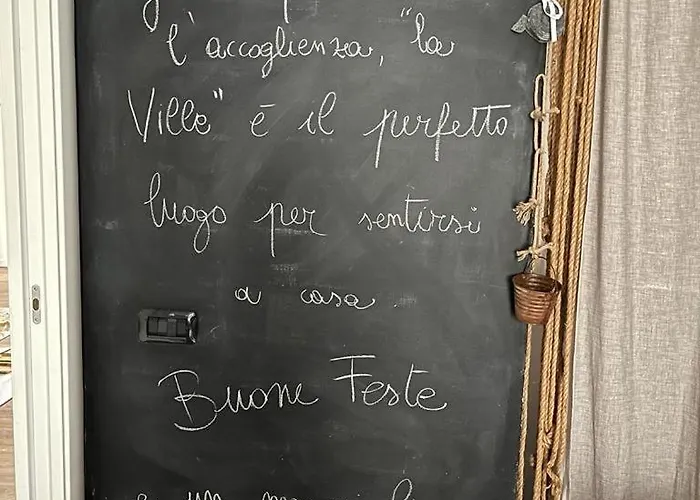 l'accoglienza, "la
Ville" è il perfetto
luogo per sentirsi
a casa.
Buone Feste